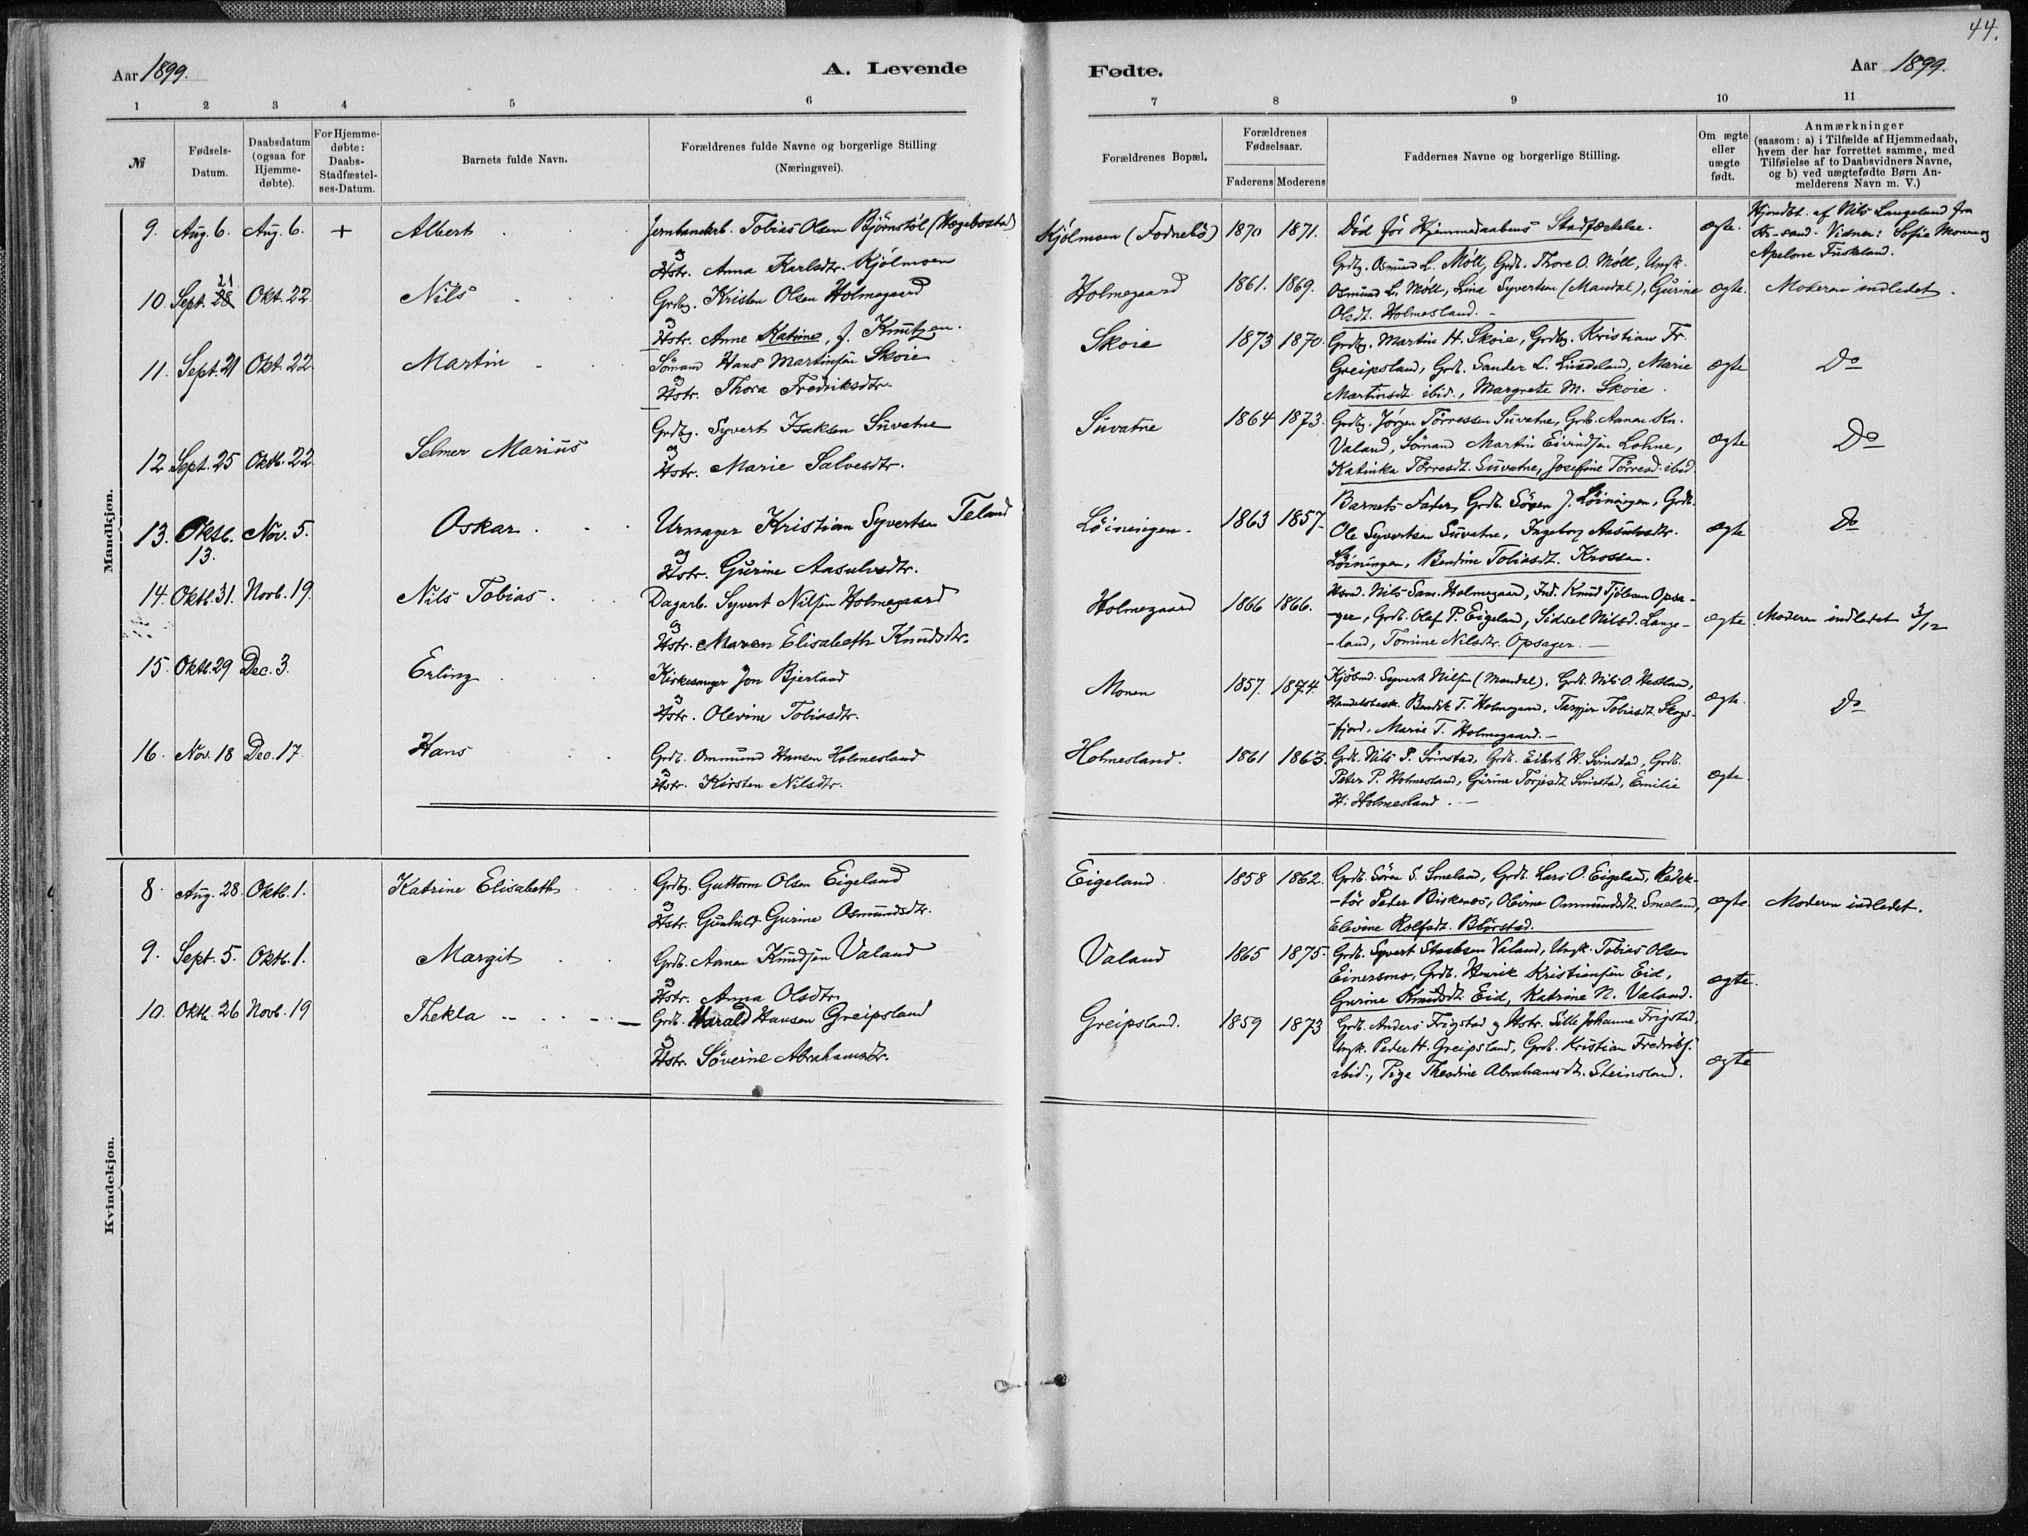 44.
Aar 1899. A. Levende Fødte. Aar 1899.
1 2 3 4 5 6 7 8 9 10 11
№
Fødsels-Datum.
Daabsdatum (ogsaa for Hjemme-døbte).
For Hjemme-døbte: Daabs-Stadfæstel-ses-Datum.
Barnets fulde Navn.
Forældrenes fulde Navne og borgerlige Stilling (Næringsvei).
Forældrenes Bopæl.
Forældrenes Fødselsaar.
Faderens Moderens
Faddernes Navne og borgerlige Stilling.
Om ægte eller uægte født.
Anmærkninger
(saasom: a) i Tilfælde af Hjemmedaab,
hvem der har forrettet samme, med
Tilføielse af to Daabsvidners Navne,
og b) ved uægtefødte Børn An-
melderens Navn m. V.)
Mandkjøn.
9. Aug. 6. Aug. 6. + Albert Jernbanearb. Tobias Olsen Bjørnstøl (Hægebostad)
& Hstr. Anna Karlsdtr. Kjølmoen
Kjølmoen (Fodnebø) 1870 1871. Død før Hjemmedaabens Stadfæstelse. ægte.
Hjemdbt. af Nils Langeland fra
Kr-sand. Vidner: Sofie Monen og
Apelone Fuskeland.
10. Sept. 28 21 Okt. 22 Nils Grdbg. Kristen Olsen Holmegaard
& Hstr. Anne Katrine, f. Knutzen.
Holmegaard 1861. 1869. ægte. Moderen indledet.
Grdbg. Osmund L. Møll, Grdb. Thore O. Møll, Ungk.
Osmund L. Møll, Lina Syvertsen (Mandal), Gurine
Olsdt. Holmesland.
11. Sept. 21 Okt. 22 Martin Sømand Hans Martinsen Skoie
& Hstr. Thora Fredriksdtr.
Skoie 1873 1870. ægte Do
Grdbg. Martin H. Skoie, Grdbg. Kristian Fr.
Greipsland, Grdb. Sander L. Lindeland, Marie
Martinsdt. ibid., Margrete M. Skoie.
12. Sept. 25 Oktb. 22 Selmer Marius Grdbg. Syvert Isaksen Suvatne
& Hstr. Marie Salvesdtr.
Suvatne 1864 1873. ægte Do
Grdbg. Jørgen Tørressen Suvatne, Grdb. Aanen Kn.
Valand, Sømand Martin Eivindsen Lohne,
Katinka Tørresdt. Suvatne, Josefine Tørresd. ibid.
13. Oktb. 13. Nov. 5. Oskar Urmager Kristian Syvertsen Teland
& Hstr. Gurine Aasulvsdtr.
Løiningen. 1863 1857. ægte Do
Barnets Fader, Grdb. Søren J. Løiningen, Grdb.
Ole Syvertsen Suvatne, Ingeborg Aasulvsdtr.
Løiningen, Bendine Tobiasdt. Krossen.
14. Oktb. 31. Novb. 19. Nils Tobias Dagarb. Syvert Nilsen Holmegaard
& Hstr. Maren Elisabeth Knudsdtr.
Holmegaard 1866 1866. ægte Moderen indledet 3/12
Nils Sam. Holmegaard, Ind. Knud Tjølsen Opsa-
ger, Grdb. Olaf P. Eigeland, Sidsel Nilsd. Lange-
land, Tomine Nilsdtr. Opsager.
15. Oktb. 29 Dec. 3. Erling Kirkesanger Jon Bjerland
& Hstr. Olevine Tobiasdtr.
Monen 1857. 1874. ægte. Do
Kjøbmd. Syvert Nilsen (Mandal), Grdb. Nils O. Hestland,
Handelsbest. Bendik T. Holmegaard, Tarjer Tobiasdt. Skogs-
fjord, Marie T. Holmegaard.
16. Nov. 18 Dec. 17. Hans Grdb. Ommund Hansen Holmesland
& Hstr. Kirsten Nilsdtr.
Holmesland. 1861 1863. ægte.
Grdb. Nils P. Svinstad, Grdb. Eilert N. Svinstad, Grdb.
Peter P. Holmesland, Gurine Torjesdt. Svinstad, Emilie
H. Holmesland.
Kvindekjøn.
8. Aug. 28. Oktb. 1. Katrine Elisabeth Grdbg. Guttorm Olsen Eigeland
& Hstr. Gunhild Gurine Osmundsdtr.
Eigeland 1858 1862. ægte Moderen indledet.
Grdb. Søren S. Smeland, Grdb. Lars O. Eigeland, Redak-
tør Peder Biskenes, Olevine Ommundsdt. Smeland,
Elevine Rolfsdt. Blørstad.
9. Sept. 5. Oktb. 1. Margit Grdb. Aanen Knudsen Valand
& Hstr. Anna Olsdtr.
Valand 1865 1875. ægte.
Grdb. Syvert Staalsen Valand, Ungk. Tobias Olsen
Einersmo, Grdb. Henrik Kristiansen Eid,
Gurine Knudsdt. Eid, Katrine N. Valand.
10. Oktb. 26 Novb. 19 Thekla Grdb. Harald Hansen Greipsland
& Hstr. Søverine Abrahamsdtr.
Greipsland. 1859 1873 ægte
Grdb. Anders Frigstad og Hstr. Sille Johanne Frigstad,
Ungk. Peder H. Greipsland, Grdb. Kristian Fredriks.
ibid., Pige Theodine Abrahamsdt. Steinsland.